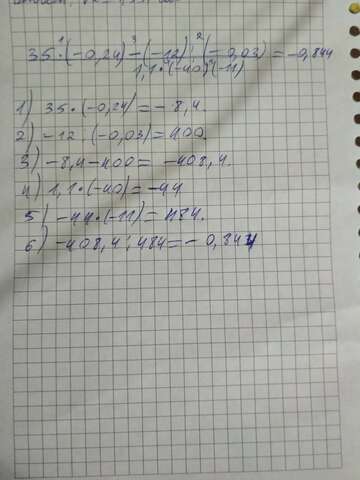 35·(-0,24)-(-12):(-0,03)=-0,844
1,1·(-40)·(-11)
1) 35·(-0,24)=-8,4.
2) -12:(-0,03)=400.
3) -8,4-400= -408,4.
4) 1,1·(-40)=-44
5) -44·(-11)=484.
6) -408,4:484=-0,844